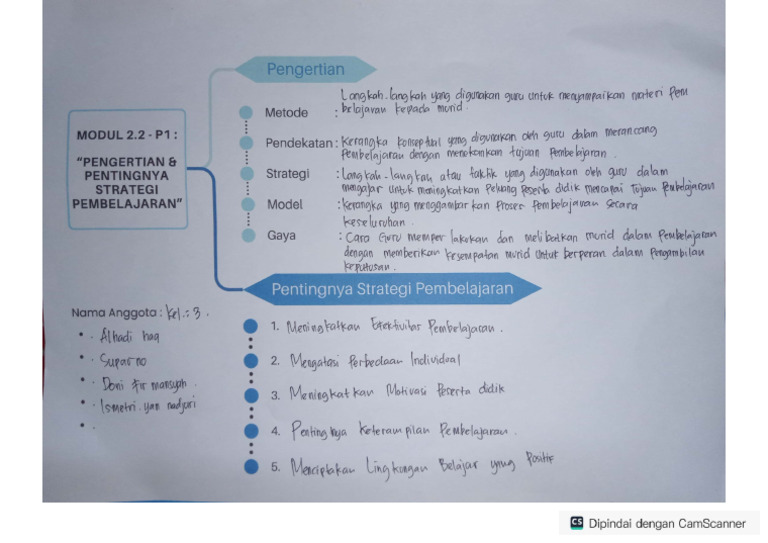 Pengertian
MODUL 2.2 - P1 :
"PENGERTIAN &
PENTINGNYA
STRATEGI
PEMBELAJARAN"
Langkah-langkah yang digunakan guru untuk menyampaikan materi Pem
Metode : belajaran kepada murid.
Pendekatan : Kerangka Konseptual yang digunakan oleh guru dalam merancang
Pembelajaran dengan menekankan tujuan Pembelajaran.
Strategi : Langkah-langkah atau taktik yang digunakan oleh guru dalam
mengajar untuk meningkatkan Peluang Peserta didik mencapai Tujuan Pembelajaran
Model : Kerangka yang menggambarkan Proses Pembelajaran Secara
Keseluruhan.
Gaya : Cara Guru memperlakukan dan melibatkan murid dalam Pembelajaran
dengan memberikan Kesempatan murid untuk berperan dalam Pengambilan
Keputusan.
Pentingnya Strategi Pembelajaran
Nama Anggota : Kel.: 3.
• Alhadi haq
• Suparno
• Doni Firmansyah.
• Ismetri yan nadjuri
• .
1. Meningkatkan Efektivitas Pembelajaran.
2. Mengatasi Perbedaan Individual
3. Meningkatkan Motivasi Peserta didik
4. Pentingnya Keterampilan Pembelajaran.
5. Menciptakan Lingkungan Belajar yang Positif
CS Dipindai dengan CamScanner